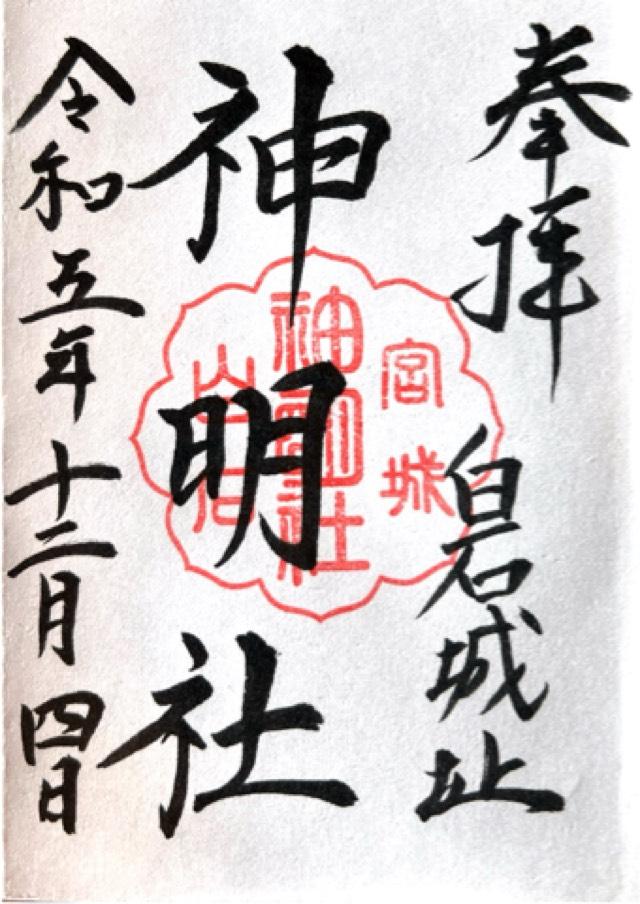 奉拝
白石城址
神明社
令和五年十二月四日
宮城
神明社
白石